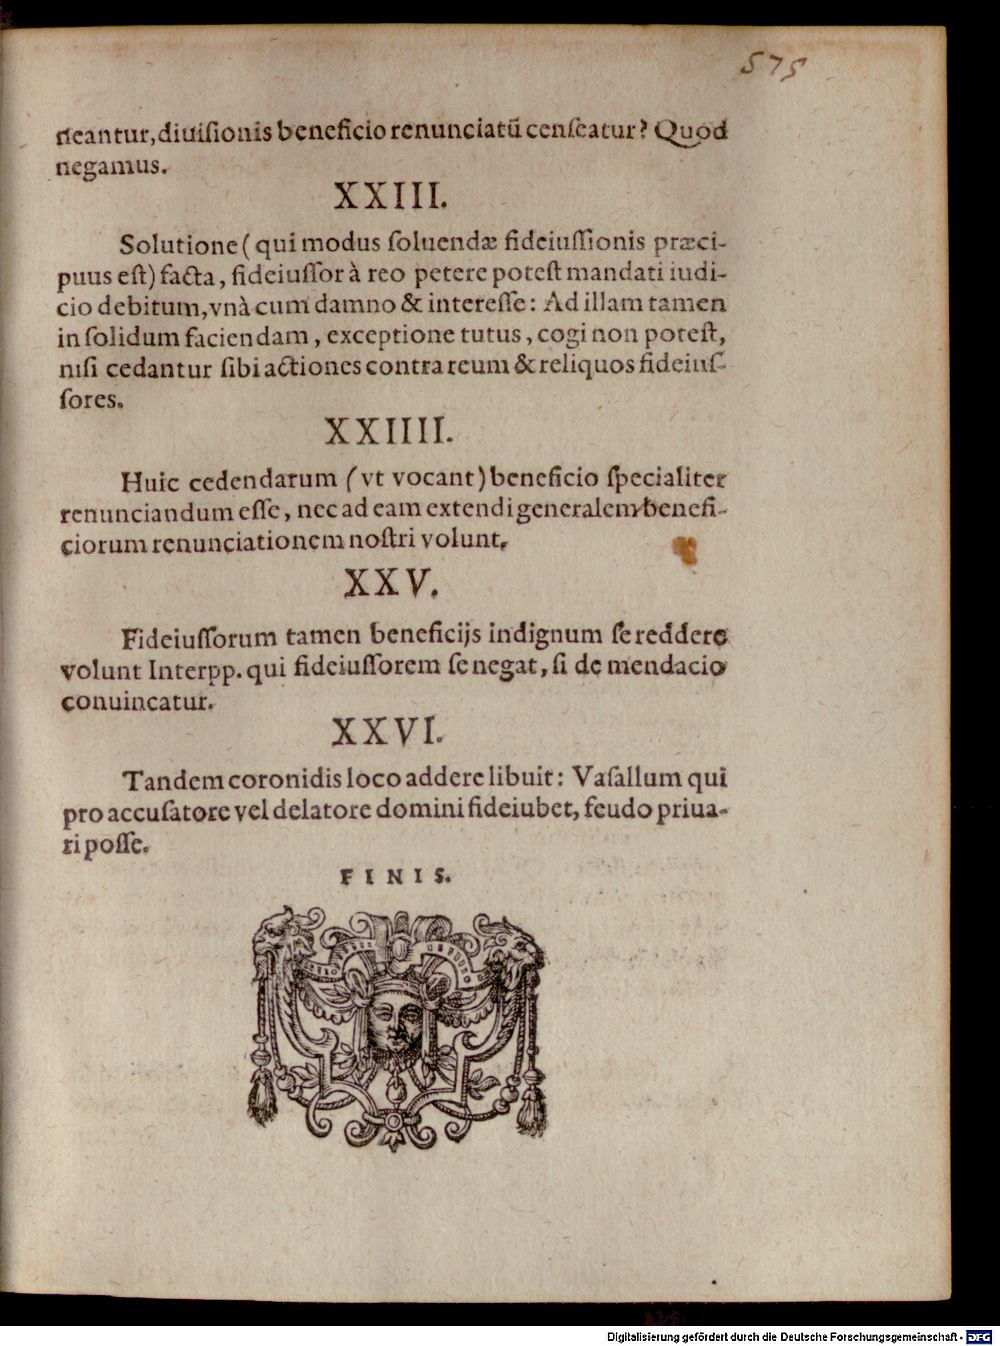 575
neantur, diuisionis beneficio renunciatū censeatur? Quod
negamus.
XXIII.
Solutione ( qui modus soluendæ fideiussionis præci-
puus est) facta, fideiussor à reo petere potest mandati iudi-
cio debitum, vnà cum damno & interesse: Ad illam tamen
in solidum faciendam, exceptione tutus, cogi non potest,
nisi cedantur sibi actiones contra reum & reliquos fideius-
sores.
XXIIII.
Huic cedendarum (vt vocant) beneficio specialiter
renunciandum esse, nec ad eam extendi generalem benefi-
ciorum renunciationem nostri volunt.
XXV.
Fideiussorum tamen beneficijs indignum se reddere
volunt Interpp. qui fideiussorem se negat, si de mendacio
conuincatur.
XXVI.
Tandem coronidis loco addere libuit: Vasallum qui
pro accusatore vel delatore domini fideiubet, feudo priua-
ri posse.
FINIS.
Digitalisierung gefördert durch die Deutsche Forschungsgemeinschaft - DFG